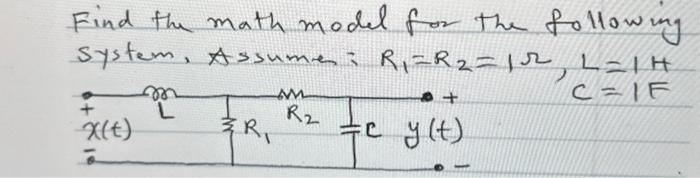 Find the math model for the following
system, Assume : R₁=R₂=1Ω, L=1H
C=1F
+ L R₂ +
x(t) R₁ C y(t)
- -